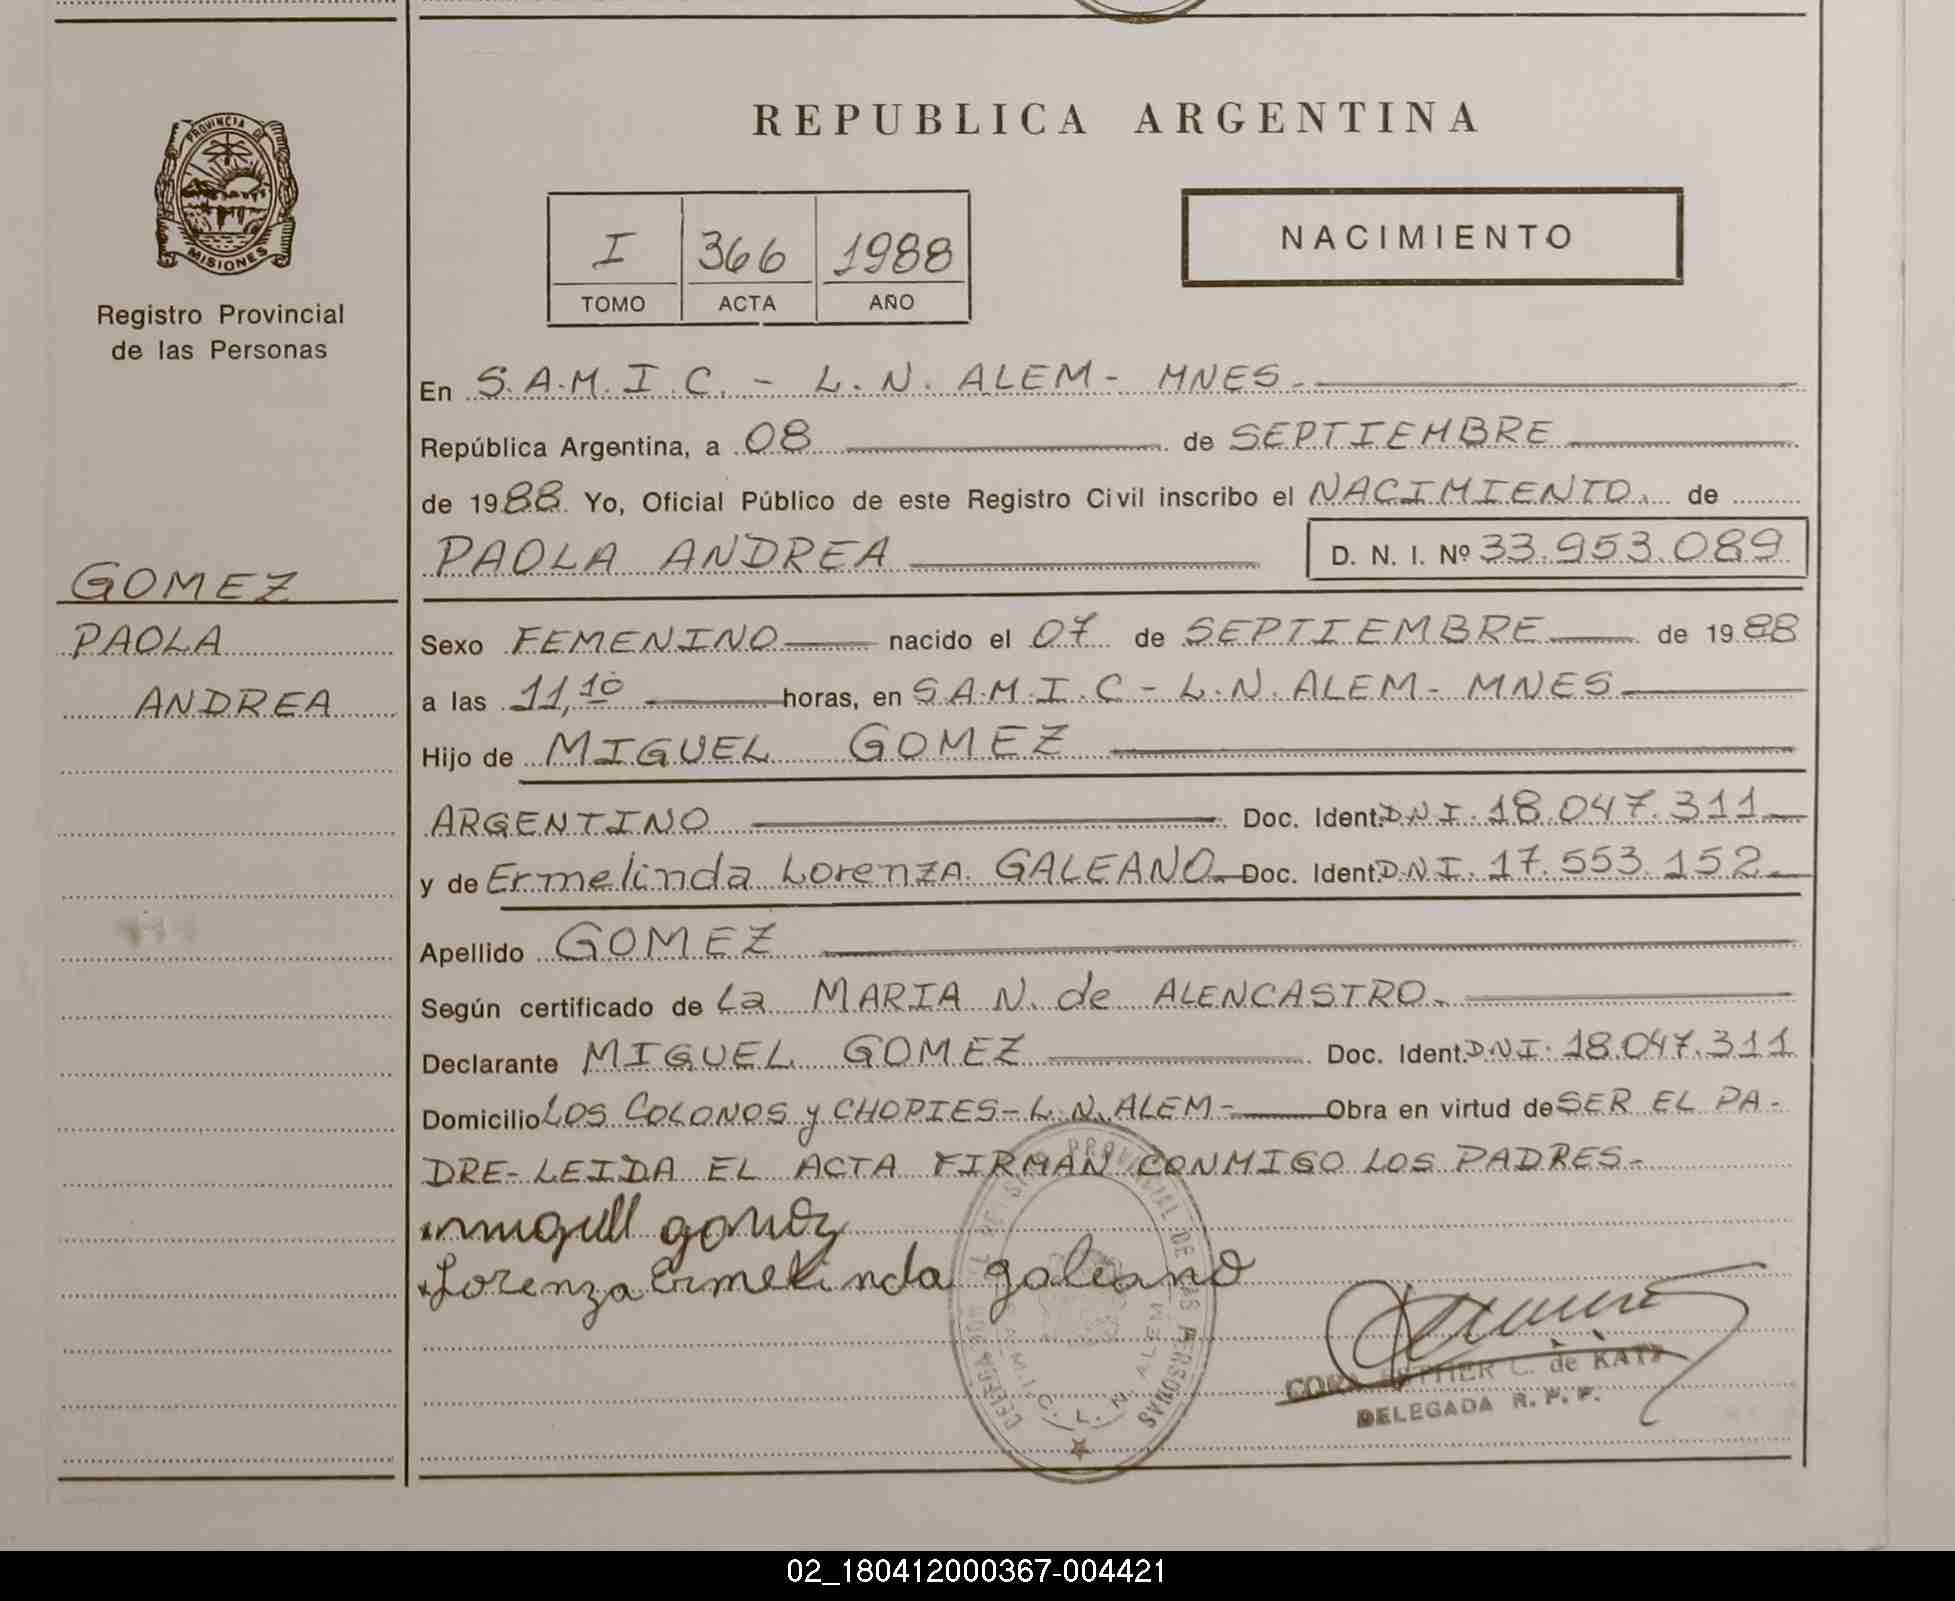 REPUBLICA ARGENTINA
PROVINCIA DE
MISIONES
Registro Provincial
de las Personas
I 366 1988
TOMO ACTA AÑO
NACIMIENTO
GOMEZ
PAOLA
ANDREA
En S.A.M.I.C. - L.N. ALEM - MNES.
República Argentina, a 08 de SEPTIEMBRE
de 1988 Yo, Oficial Público de este Registro Civil inscribo el NACIMIENTO. de
PAOLA ANDREA D. N. I. Nº 33.953.089
Sexo FEMENINO nacido el 07 de SEPTIEMBRE de 1988
a las 11,10 horas, en S.A.M.I.C - L.N. ALEM - MNES
Hijo de MIGUEL GOMEZ
ARGENTINO Doc. Ident. DNI. 18.047.311
y de Ermelinda Lorenza GALEANO. Doc. Ident. DNI. 17.553.152
Apellido GOMEZ
Según certificado de La MARIA N. de ALENCASTRO.
Declarante MIGUEL GOMEZ Doc. Ident. DNI. 18.047.311
Domicilio LOS COLONOS y CHOPIES - L.N. ALEM - Obra en virtud de SER EL PA-
DRE - LEIDA EL ACTA FIRMAN CONMIGO LOS PADRES -
miguel gomez
Lorenza Ermelinda galeano
PROVINCIAL DE LAS PERSONAS
S.A.M.I.C. L. N. ALEM
ESTHER C. de KATZ
DELEGADA R. P. P.
02_180412000367-004421